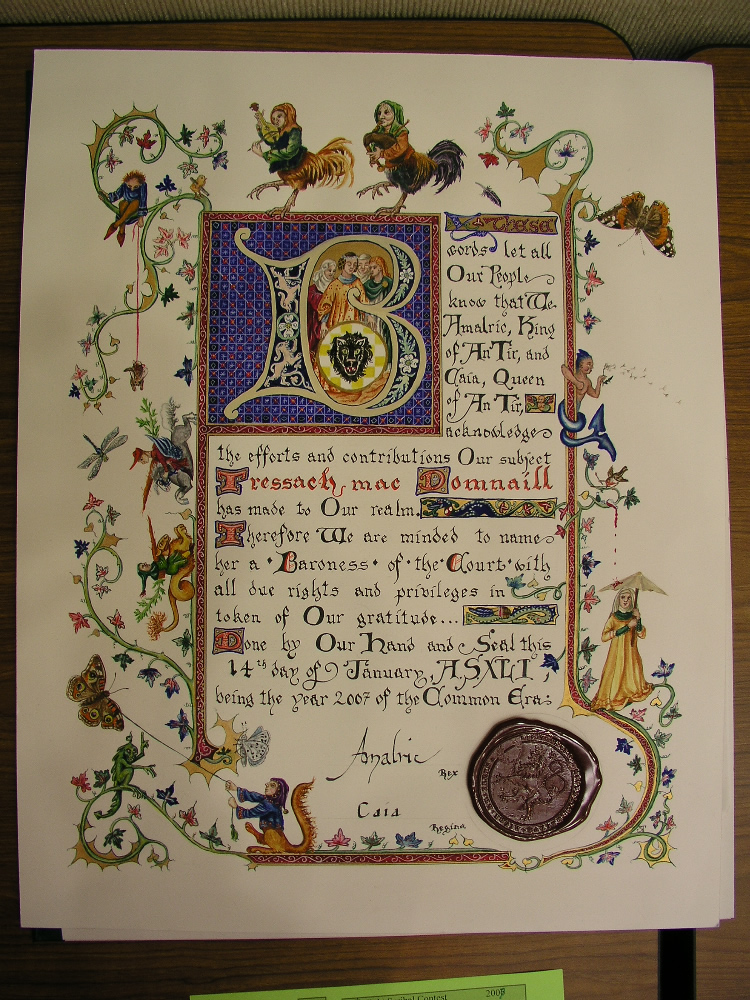 B
These
words let all
Our People
know that We
Amalric, King
of An Tir, and
Caia, Queen
of An Tir,
acknowledge
the efforts and contributions Our subject
Tressach mac Domnaill
has made to Our realm.
Therefore We are minded to name
her a • Baroness • of • the • Court • with
all due rights and privileges in
token of Our gratitude...
Done by Our Hand and Seal this
14th day of January, ASXLI,
being the year 2007 of the Common Era:
Amalric
Rex
Caia
Regina
Scribal Contest